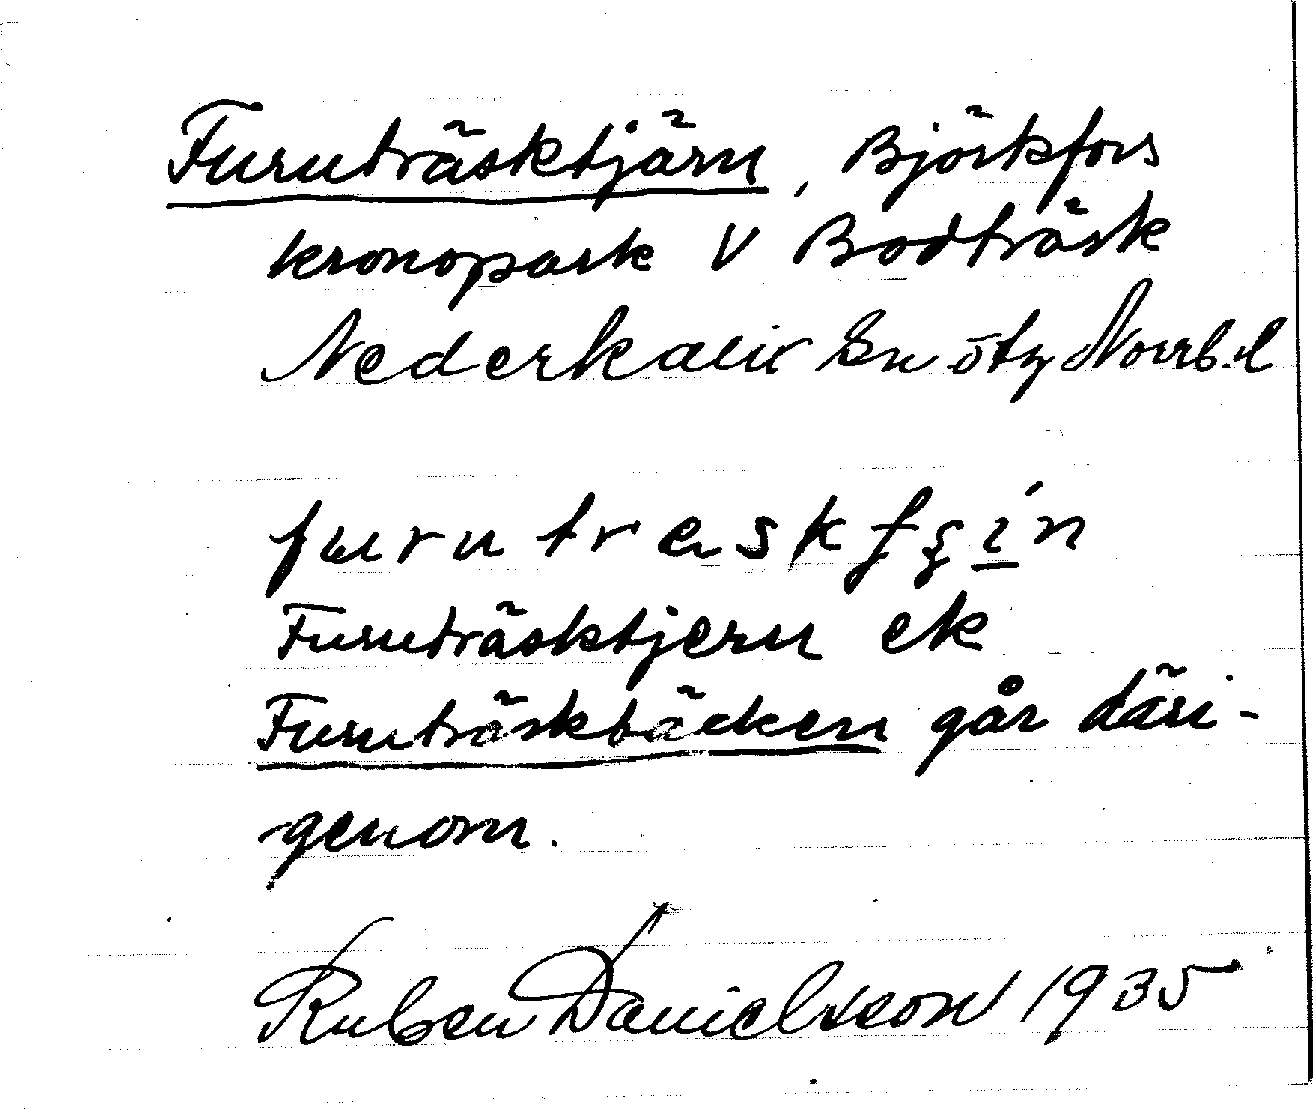 Furuträsktjärn, Björkfors
kronopark V Bodträsk
Nederkalix sn ötg Norrb. l
furutresk
Furuträsktjern ek
Furuträskbäcken går däri-
genom.
Ruben Danielsson 1935